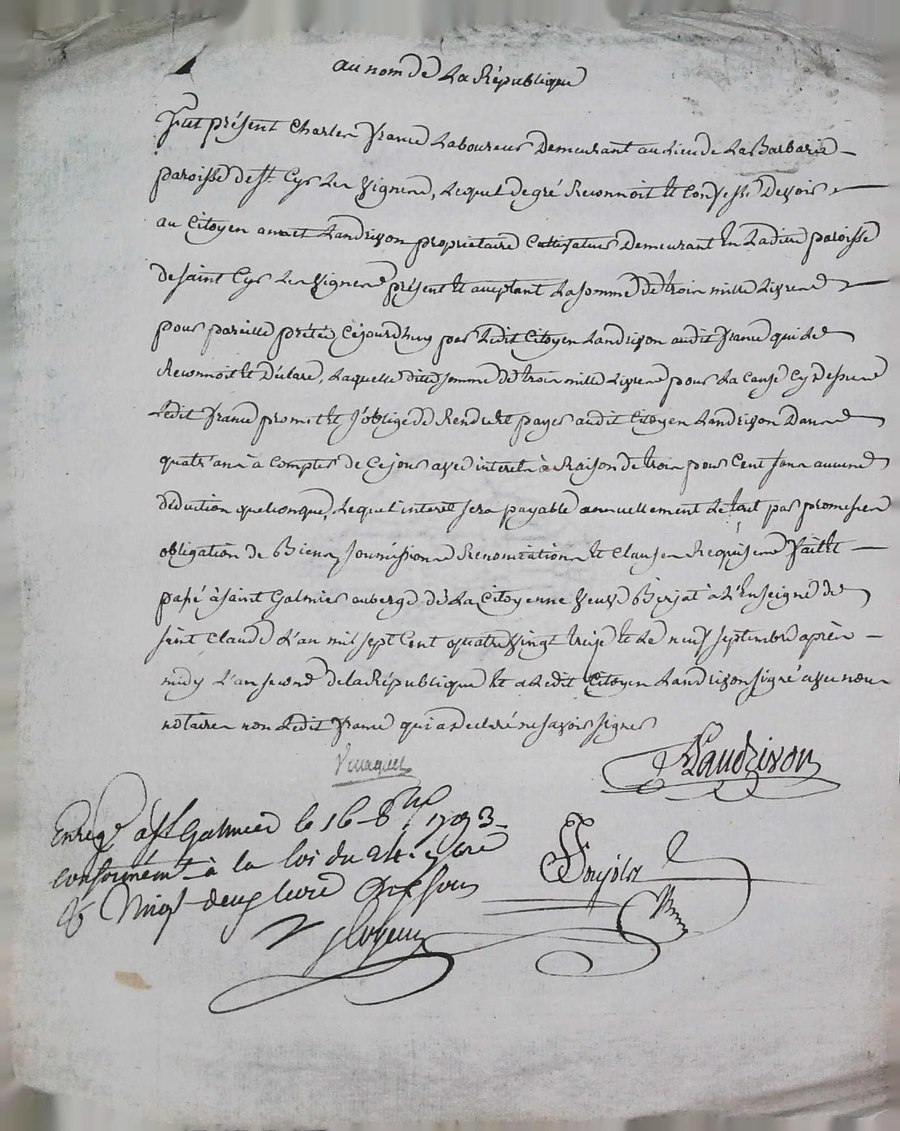 au nom de La République
fut présent Charles france Laboureur Demeurant au Lieu de La Barbarie
paroisse de St. Cyr Les vignes, Lequel de gré Reconnoit et Confesse Devoir
au Citoyen Landrivon propriétaire Cultivateur Demeurant En Ladite paroisse
de saint Cyr Les vignes présent et acceptant La somme de trois mille Livres
pour pareille prêtée Cejourdhuy par Ledit Citoyen Landrivon audit france qui Le
Reconnoit et Déclare, Laquelle dite somme de trois mille Livres pour La Cause Cy Dessus
Ledit france promet et s'oblige de Rendre et payer audit Citoyen Landrivon Dans
quatr'ans à Compter de Ce jour avec interets à Raison de trois pour Cent sans aucune
déduction quelconque, Lequel interet sera payable annuellement Le tout par promesses
obligation de Biens soumissions Renonciations et Clauses Requises fait et
passé à saint Galmier auberge de La Citoyenne veuve à L'Enseigne de
saint Claude L'an mil sept Cent quatre vingt treize et Le neuf septembre après
midy L'an second de la République et a Ledit Citoyen Landrivon signé avec nous
notaires non Ledit france qui a Déclaré ne savoir signer
Landrivon
Enregé à St Galmier le 16 8bre 1793
conformément à la loi du
vingt deux livre dix sous